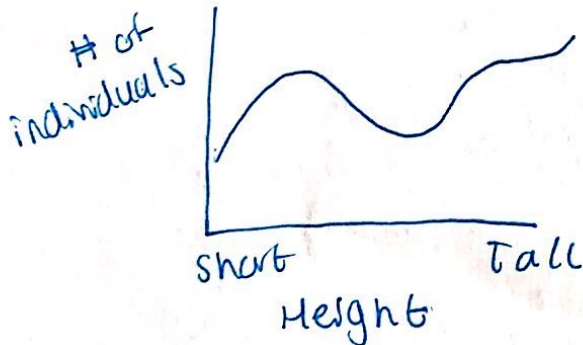 # of
individuals
Short
Tall
Height